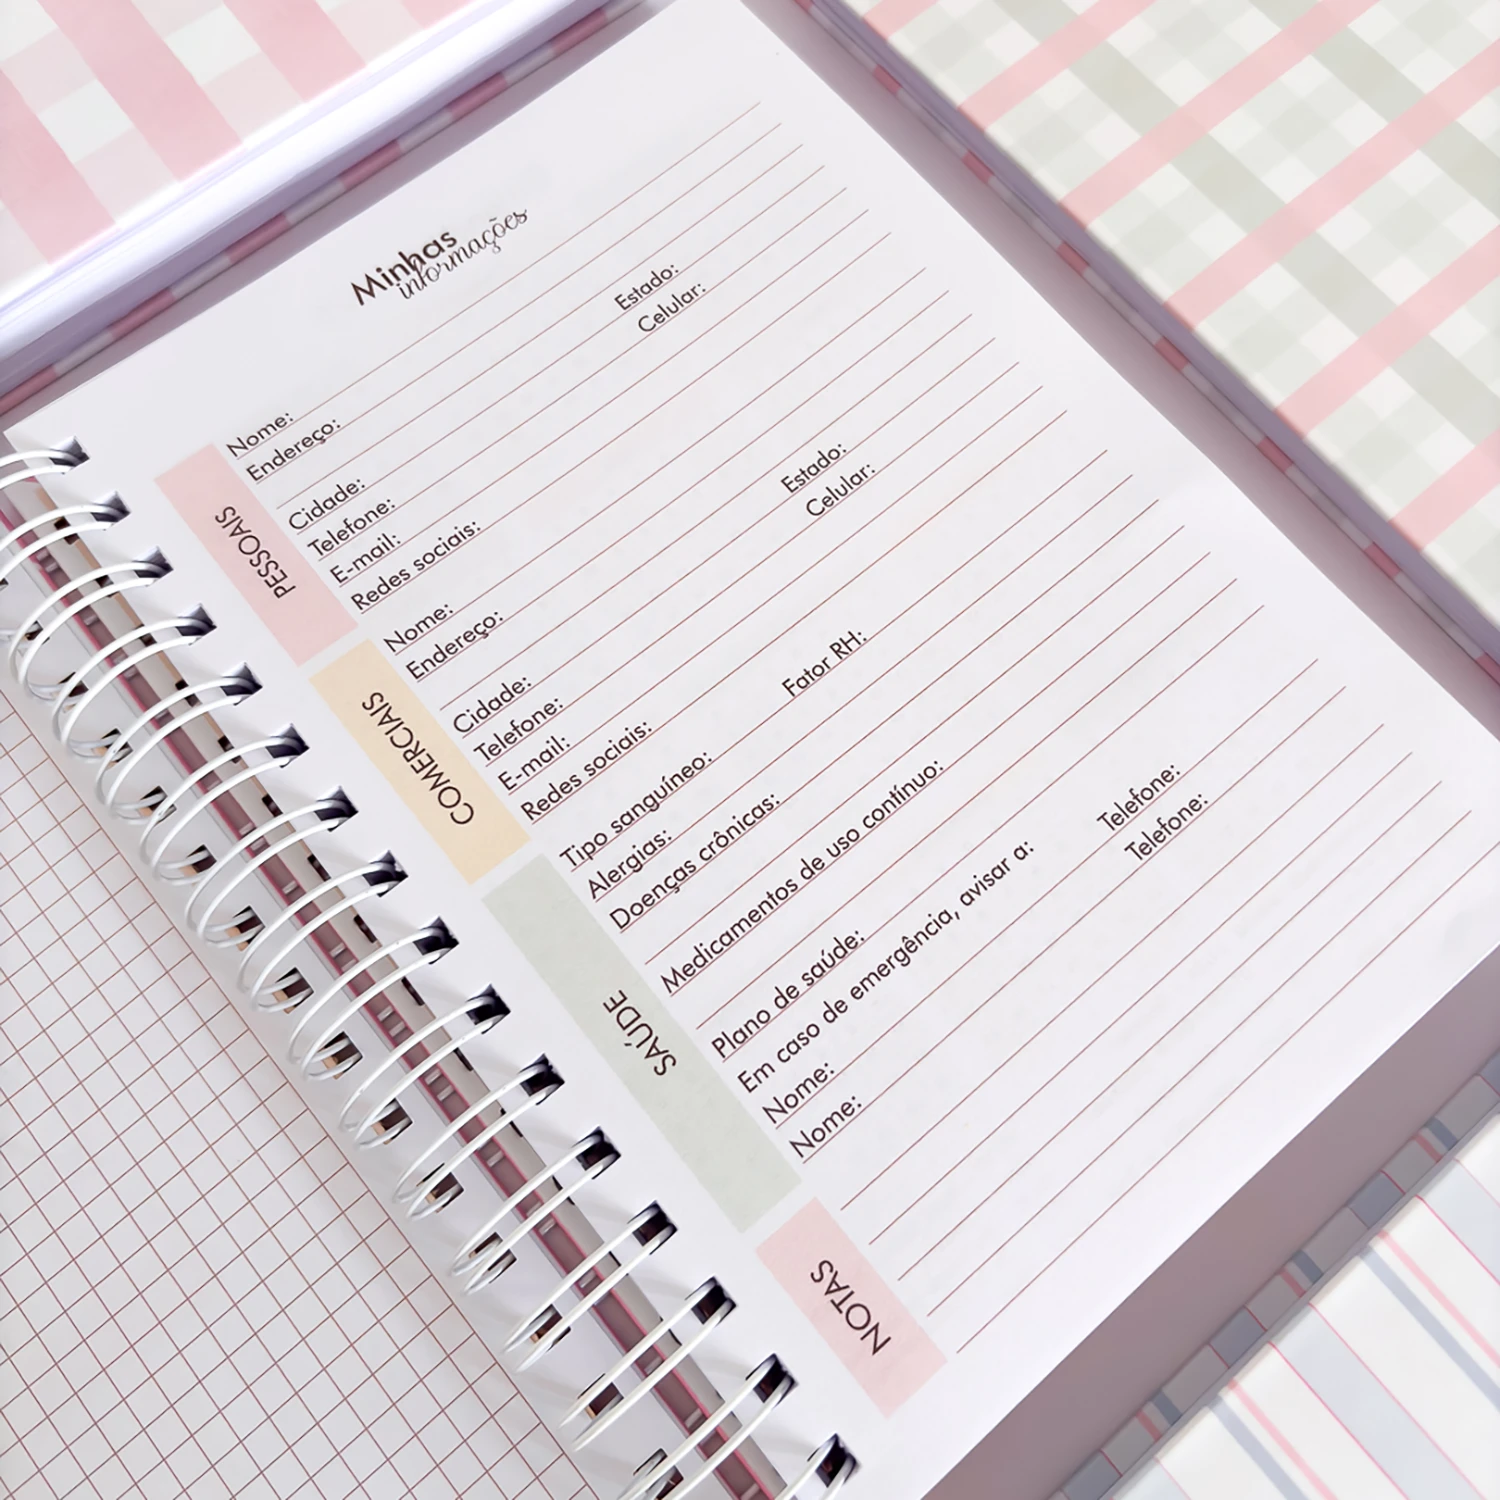 Minhas
informações
PESSOAIS
Nome:
Endereço:
Cidade: Estado:
Telefone: Celular:
E-mail:
Redes sociais:
COMERCIAIS
Nome:
Endereço:
Cidade: Estado:
Telefone: Celular:
E-mail:
Redes sociais:
SAÚDE
Tipo sanguíneo: Fator RH:
Alergias:
Doenças crônicas:
Medicamentos de uso contínuo:
Plano de saúde:
Em caso de emergência, avisar a:
Nome: Telefone:
Nome: Telefone:
NOTAS